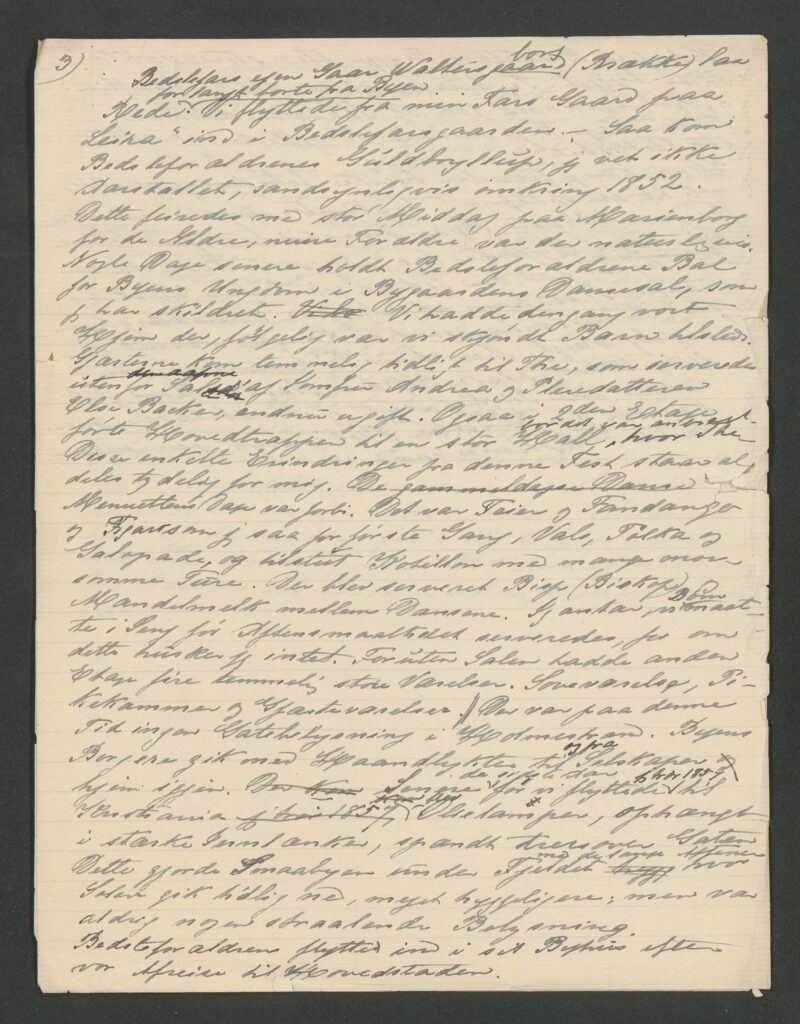 3)
bort
Bedstefars egen Gaar, Waltersgaard (Brakke) laa
for langt borte fra Byen
Rede. Vi flyttede fra min Fars Gaard paa
Leira" ind i Bedstefarsgaarden. – Saa kom
Bedsteforældrenes Guldbryllup, jeg vet ikke
Aarstallet, sandsynligvis omkring 1852.
Dette feiredes med stor Middag paa Marienborg
for de Ældre, mine Forældre var der naturligvis.
Nogle Dage senere holdt Bedsteforældrene Bal
for Byens Ungdom i Bygaardens Dansesal, som
jeg har skildret. Vi hadde dengang vort
Hjem der, følgelig var vi skjøndt Barn tilsted.
Gjæsterne kom temmelig tidligt til The, som serveredes
utenfor Salen af Jomfru Andrea og Pleiedatteren
Else Backer, endnu ugift. Ogsaa i 2den Etage
førte Hovedtrappen til en stor Hall, hvor The
Disse enkelte Erindringer fra denne Fest staar al
deles tydelig for mig. De gammeldagse Danse
Menuettens Dage var forbi. Det var Feier og Fandango
og som jeg saa for første Gang, Vals, Polka og
Galopade, og tilslut Kotillon med mange mor-
somme Ture. Der blev serveret Bisp (Biskop)
Mandelmelk mellem Dansene. Jeg antar, vi Børn maat-
te i Seng før Aftensmaaltidet serveredes, for om
dette husker jeg intet. Foruten Salen hadde anden
Etage fire temmelig store Værelser. Soveværelse, Pi-
kekammer og Gjæsteværelser. // Der var paa denne
Tid ingen Gatebelysning i Holmestrand. Byens
og fra
Borgere gik med Haandlygter til Selskaper og
de siste Aar
hjem igjen. Senere før vi flyttede til
Kristiania 1857 Olielamper, ophængt
i stærke Jernlænker, spændt tversover Gaten
Dette gjorde Smaabyen under Fjeldet hvor
Solen gik tidlig ned, meget hyggeligere; men var
aldrig nogen straalende Belysning.
Bedsteforældrene flyttet ind i sit Byhus efter
vor Afreise til Hovedstaden.